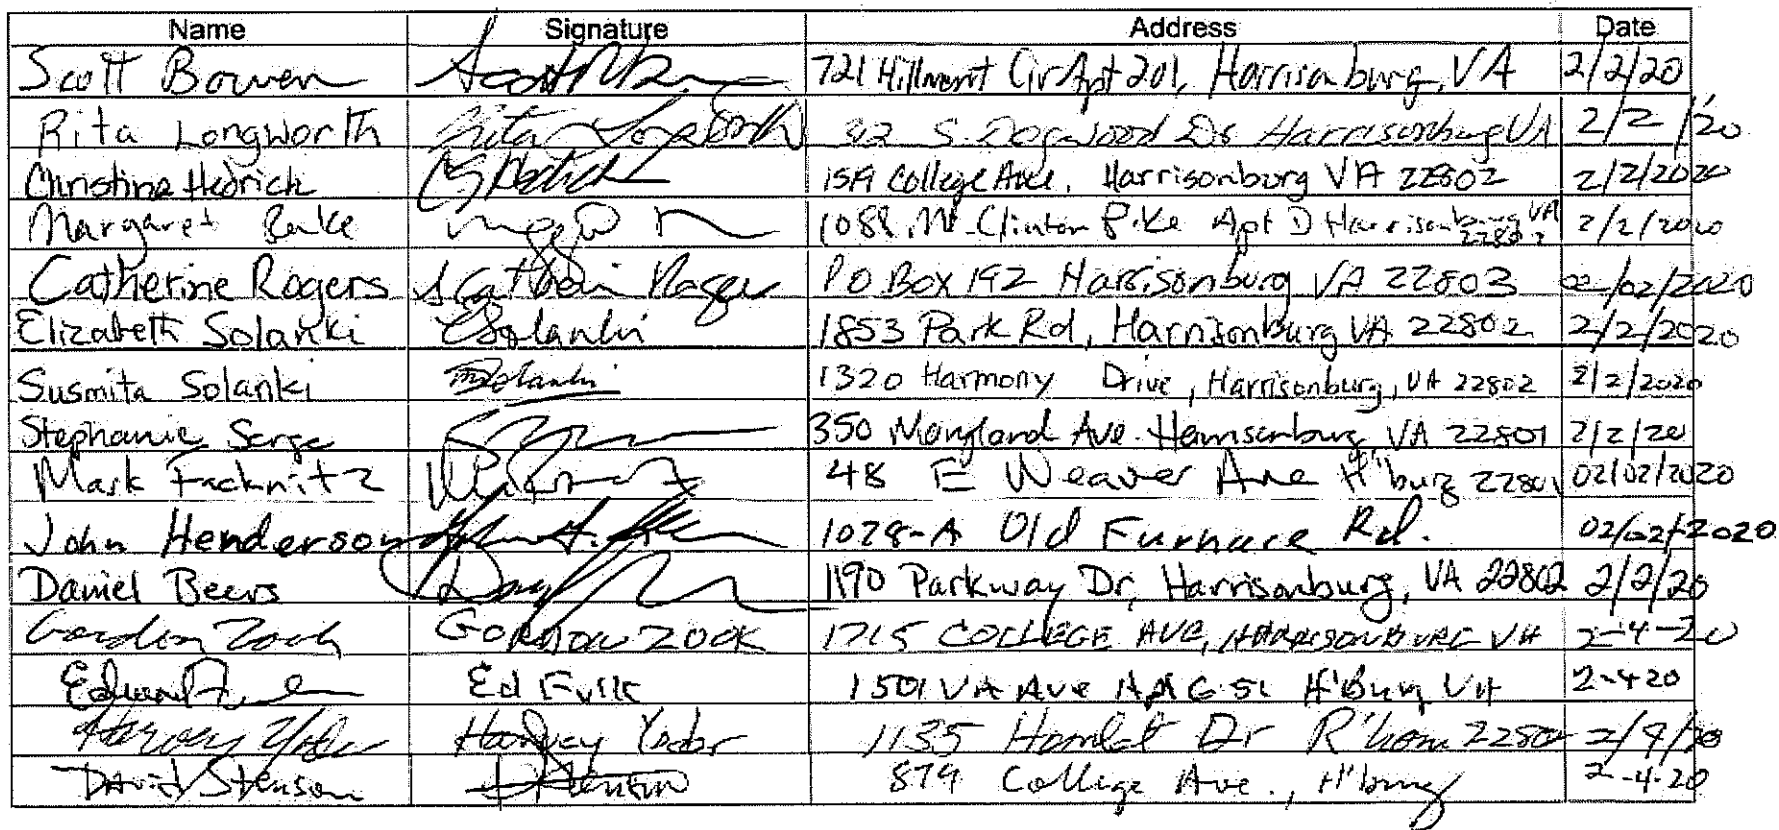 Name Signature Address Date
Scott Bowen 721 Hillmont Cir Apt 201, Harrisonburg, VA 2/2/20
Rita Longworth Rita Longworth 32 S. Dogwood Dr Harrisonburg VA 2/2/20
Christina Hedrick College Ave, Harrisonburg VA 22802 2/2/2020
Margaret 1088 Mt. Clinton Pike Apt D Harrisonburg VA 22802 2/2/2020
Catherine Rogers PO Box 192 Harrisonburg VA 22803 02/02/2020
Elizabeth Solanki ESolanki 1853 Park Rd, Harrisonburg VA 22802 2/2/2020
Susmita Solanki 1320 Harmony Drive, Harrisonburg, VA 22802 2/2/2020
Stephanie 350 Maryland Ave. Harrisonburg, VA 22801 2/2/20
Mark Facknitz 48 E Weaver Ave H'burg 22801 02/02/2020
John Henderson 1028-A Old Furnace Rd. 02/02/2020
Daniel Beers 1190 Parkway Dr, Harrisonburg, VA 22802 2/2/20
Gordon Zook GORDON ZOOK 1715 COLLEGE AVE, HARRISONBURG VA 2-4-20
Ed 1501 VA Ave H'Burg VA 2-4-20
Harvey Yoder Harvey Yoder 1135 Hamlet Dr 22802
David Stenson 879 College Ave., H'burg 2-4-20